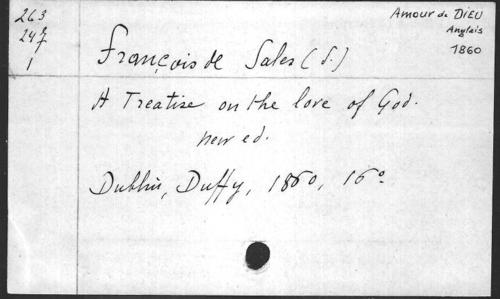 263
247
1
Amour de DIEU
Anglais
1860
François de Sales (S.)
A Treatise on the love of God.
new ed.
Dublin, Duffy, 1860, 16°